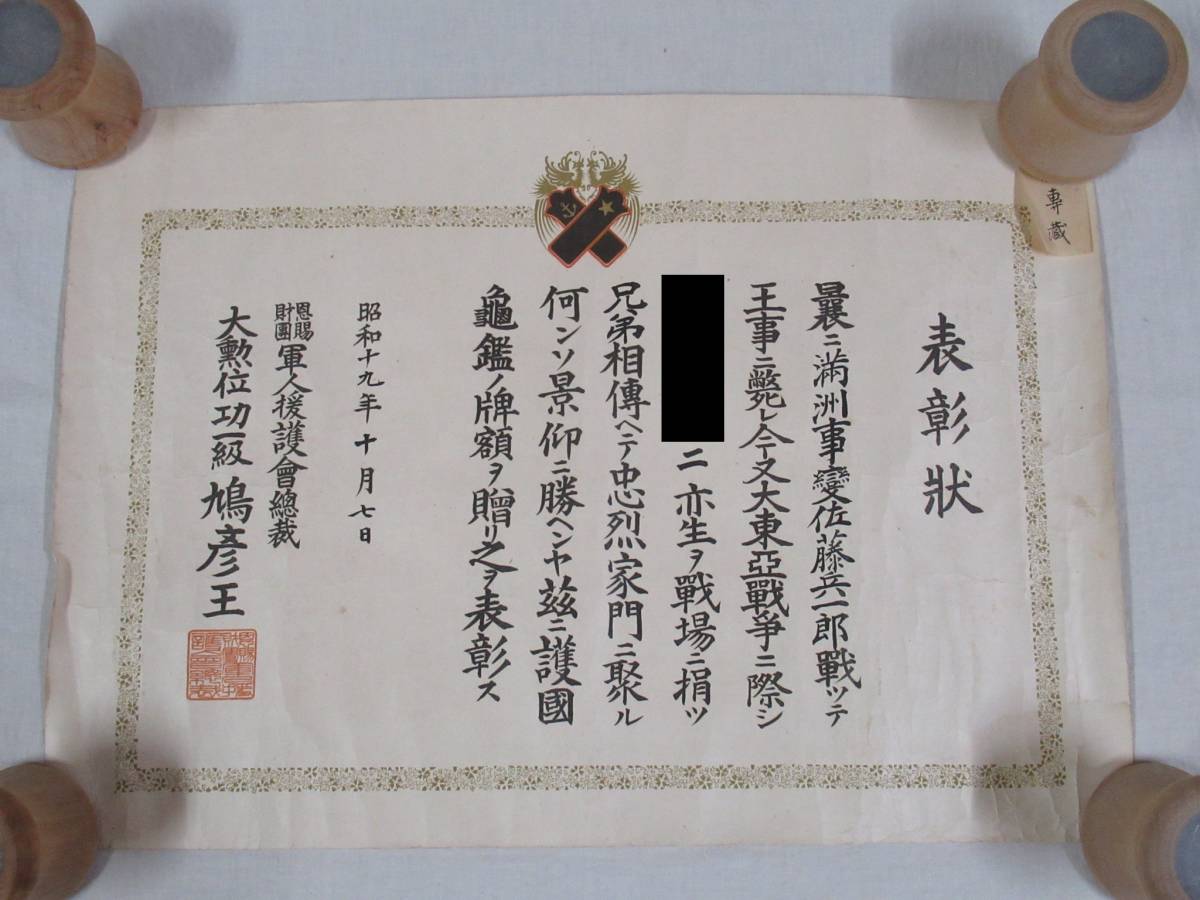 表彰狀
曩ニ滿洲事變佐藤兵一郎戰ツテ
王事ニ斃レ今又大東亞戰爭ニ際シ
ニ亦生ヲ戰場ニ捐ツ
兄弟相傳ヘテ忠烈家門ニ聚ル
何ンソ景仰ニ勝ヘンヤ茲ニ護國
龜鑑ノ牌額ヲ贈リ之ヲ表彰ス
昭和十九年十月七日
恩賜
財團
軍人援護會總裁
大勲位功一級鳩彥王
専藏